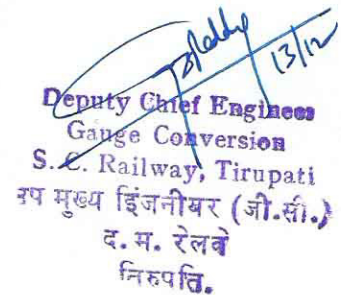 13/12
Deputy Chief Engineer
Gauge Conversion
S. C. Railway, Tirupati
उप मुख्य इिंजनीयर (जी.सी.)
द. म. रेलवे
तिरुपति.